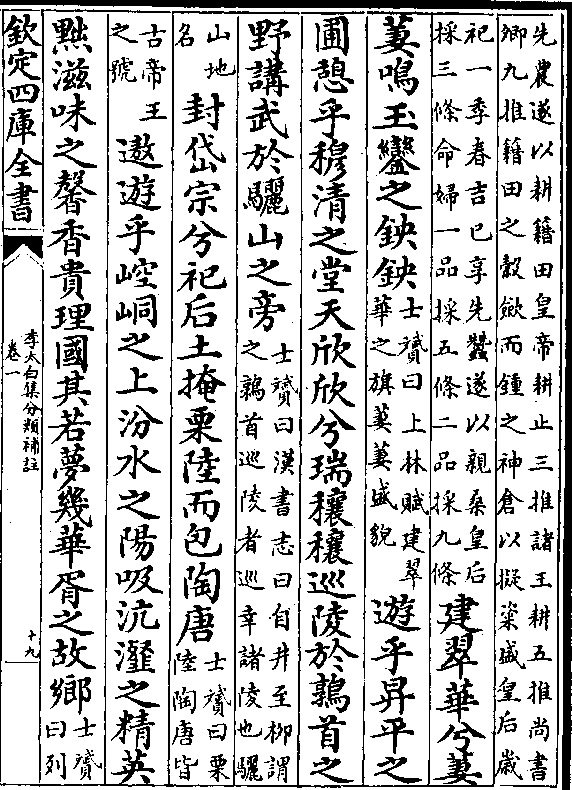 先農遂以耕籍田皇帝耕止三推諸王耕五推尚書
卿九推籍田之穀斂而鍾之神倉以擬粢盛皇后嵗
祀一季春吉巳享先蠶遂以親桑皇后
採三條命婦一品採五條二品採九條
建翠華兮萋
萋鳴玉鑾之鉠鉠
士贇曰上林賦建翠
華之旗萋萋盛貌
遊乎昇平之
圃憩乎穆清之堂天欣欣兮瑞穰穰巡陵於鶉首之
野講武於驪山之旁
士贇曰漢書志曰自井至柳謂
之鶉首巡陵者巡幸諸陵也驪
山地
名
封岱宗兮祀后土掩栗陸而包陶唐
士贇曰栗
陸陶唐皆
古帝王
之號
遨遊乎崆峒之上汾水之陽吸沆瀣之精英
黜滋味之馨香貴理國其若夢幾華胥之故鄉
士贇
曰列
欽定四庫全書
李太白集分類補註
卷一
十九